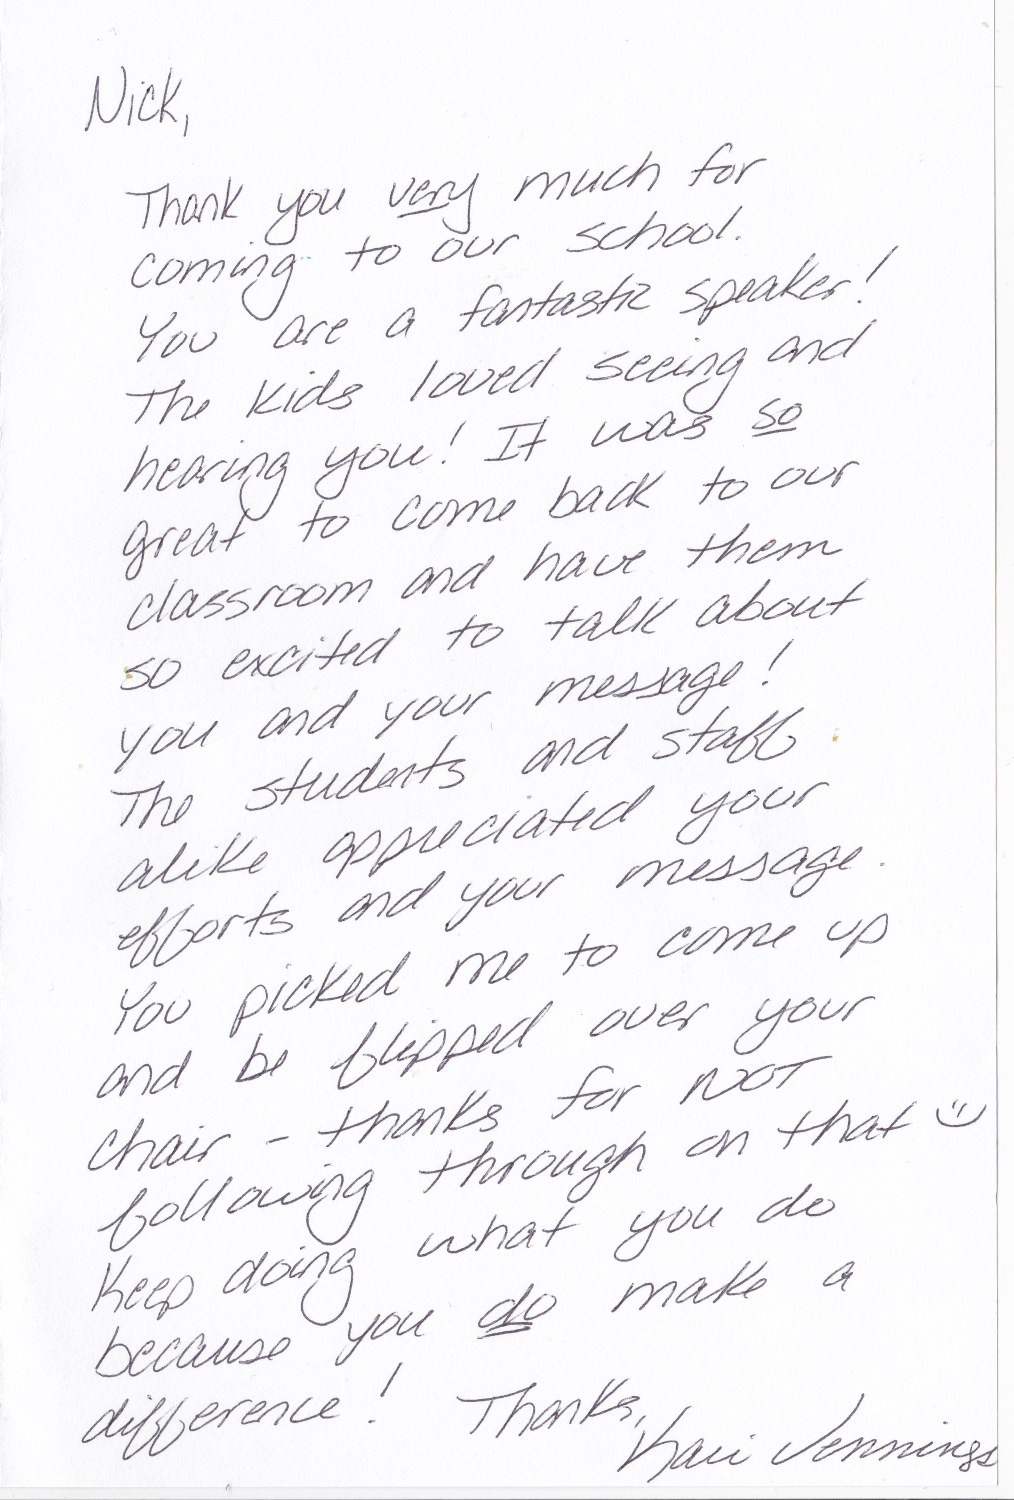 Nick,
Thank you very much for
coming to our school.
You are a fantastic speaker!
The kids loved seeing and
hearing you! It was so
great to come back to our
classroom and have them
so excited to talk about
you and your message!
The students and staff
alike appreciated your
efforts and your message.
You picked me to come up
and be flipped over your
chair - thanks for NOT
following through on that :)
Keep doing what you do
because you do make a
difference! Thanks,
Kari Jennings